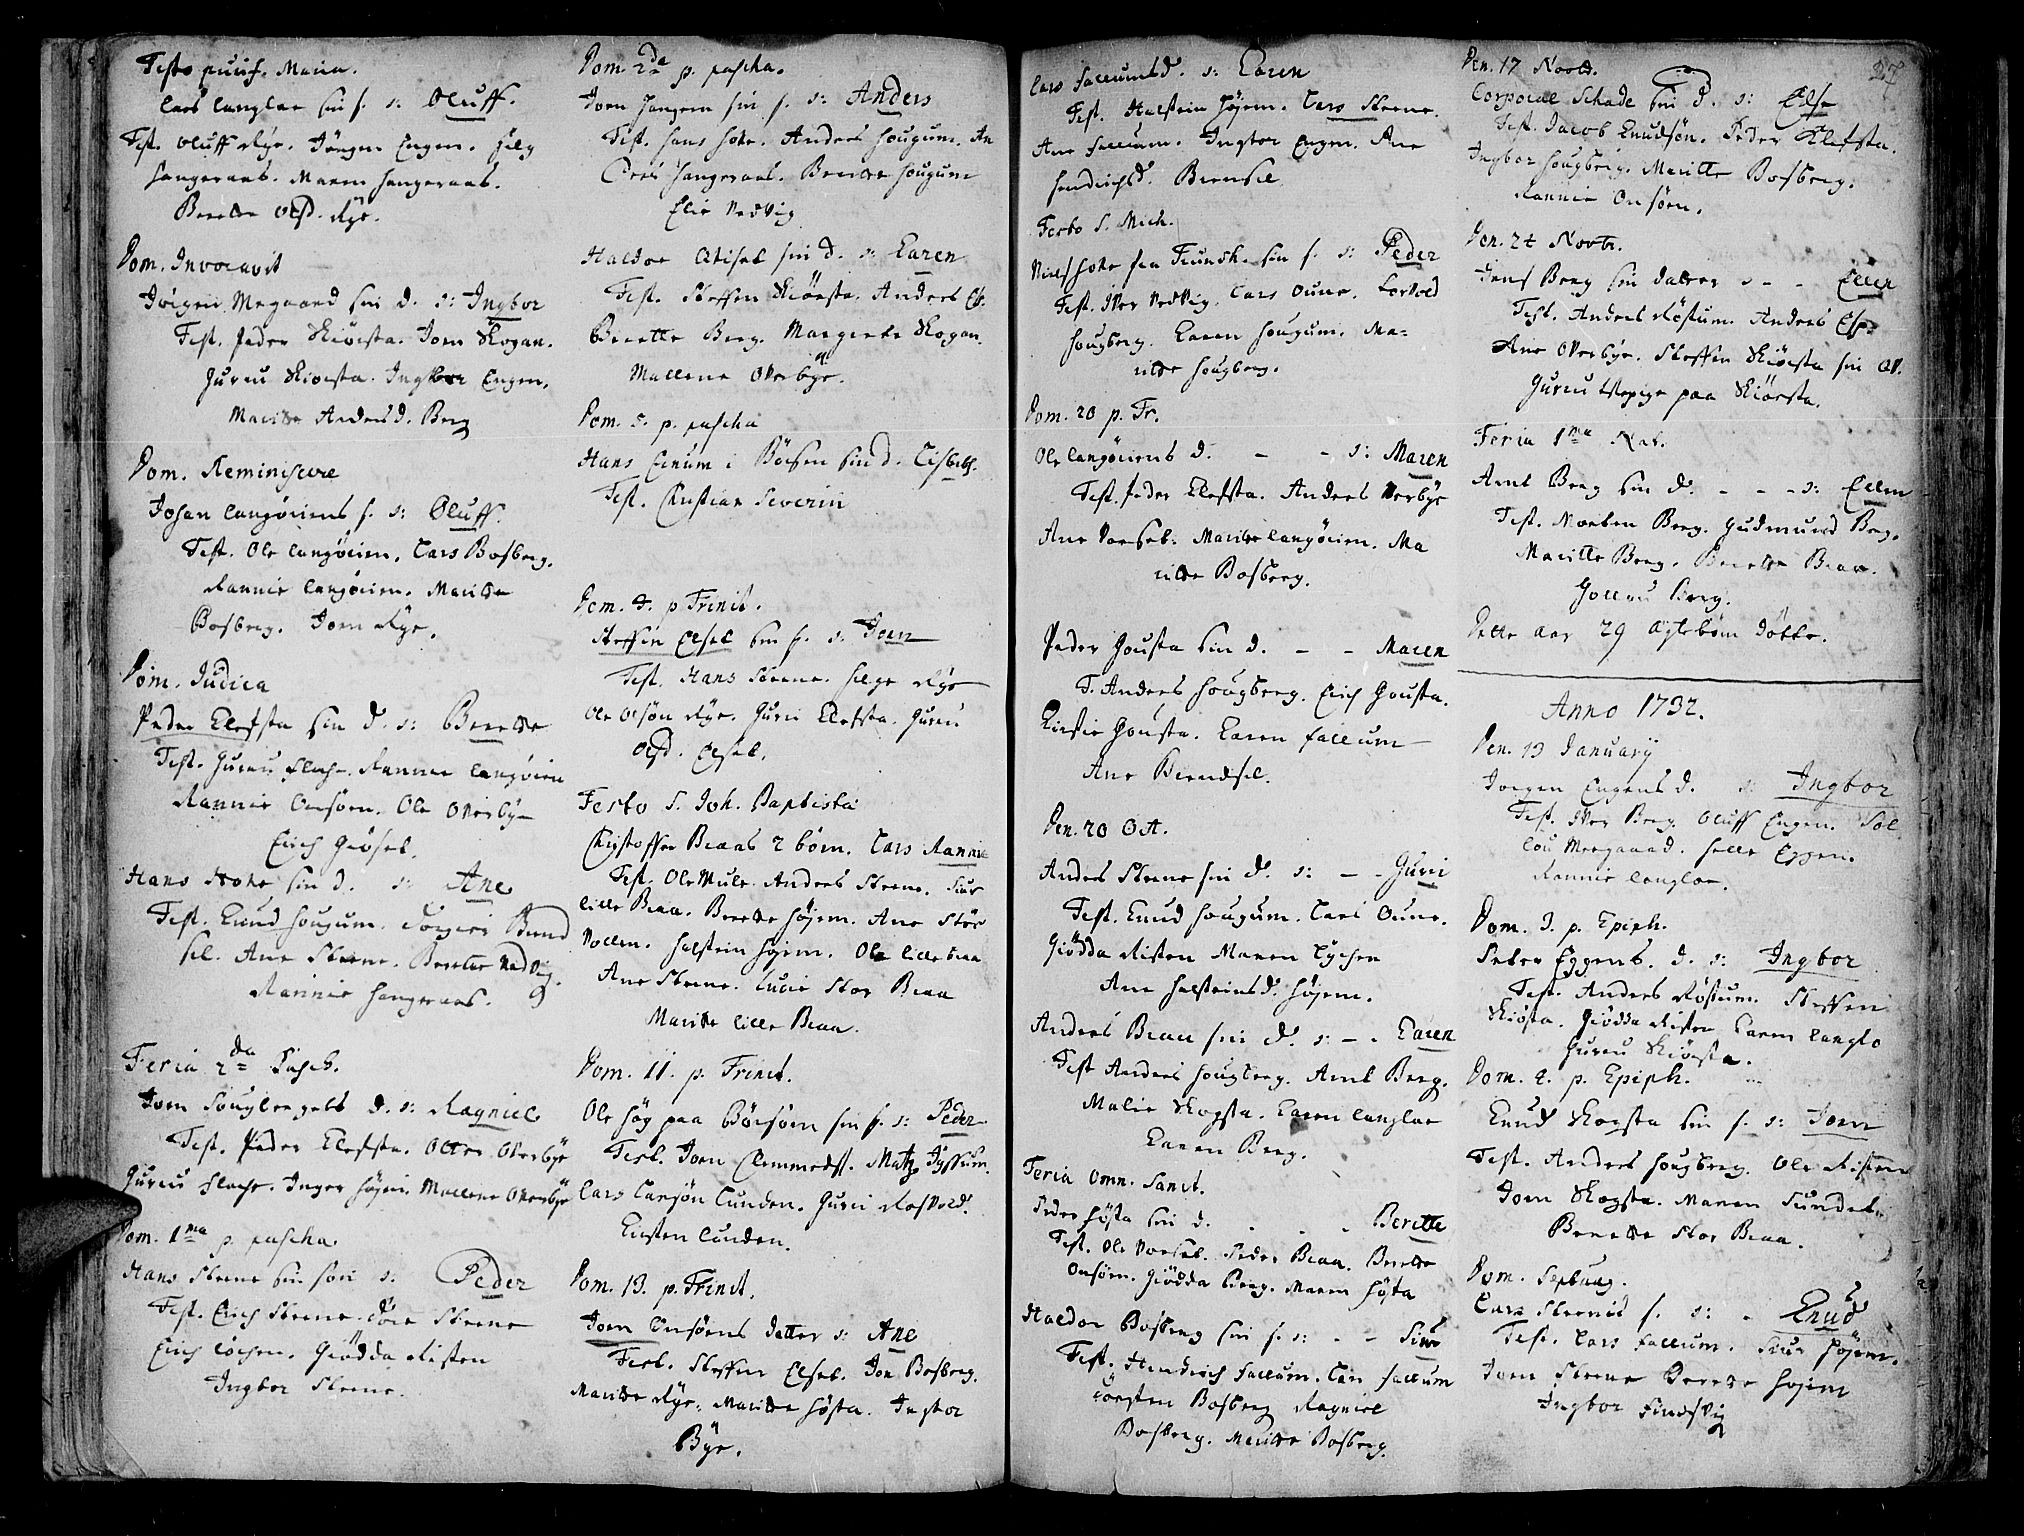 Festo purif. Maria.
Lars Langlae sin s. n: Oluff.
Test. Oluff Rÿe. Jörgen Engen. Helg
Hangeraas. Maren Hangeraas.
Beritte Olsd. Rÿe.
Dom. Invocavit
Jörgen Megaard sin d. n: Ingbor
Test. Peder Skiörsta. Joen Skogan.
Guru Skiörsta. Ingbor Engen.
Maritte Andersd. Berg
Dom. Reminiscere
Johan Langöriens s. n: Oluff.
Test. Ole Langörien. Lars Bosberg.
Rannie Langörien. Maritte
Bosberg. Joen Rÿe.
Dom. Judica
Peder Klefsta sin d. n: Beritte
Test. Guru Flach. Rannie Langörien
Rannie Onsöen. Ole Overbÿe
Erich Giösel.
Hans Hoke sin d. n: Ane
Test. Knud Hougum. Börgier Brend
sel. Ane Steene. Beritte Vedvig.
Rannie Hangeraas.
Feria 2da Pasch.
Joen Souglengets d. n: Ragniel
Test. Peder Klefsta. Otter Overbÿe
Guru Flach. Inger Höjem. Mallene Overbÿe
Dom. 1ma p. pascha
Hans Steene sin sön n: Peder
Test. Erich Steene. Tore Steene
Erich Löchen. Giödda Risten
Ingbor Steene.
Dom. 2da p. pascha.
Joen Hangern sin s. n: Anders
Test. Hans Hoke. Anders Hougum. An
ders Hangeraas. Beritte Hougum
Elie Vedvig
Haldor Elisel sin d. n: Karen
Test. Steffen Skiörsta. Anders Es.
Beritte Berg. Margrete Skogan.
Mallene Overbÿe.
Dom. 5. p. pascha
Hans Einum i Börsen sin d. Lisbeth.
Test. Christian Severin
Dom. 4. p Trinit.
Steffen Elsel sin s. n: Joen
Test. Hans Steene. Helge Rÿe
Ole Olsön Rÿe. Guru Klefsta. Guru
Olsd. Elsel.
Festo S. Joh. Baptista
Christoffer Braas 2 börn. Lars Rannie
Test. Ole Mule. Anders Steene. Siur
Lille Braa. Beritte Höjem. Ane Stör
vollen. Halstein Höjem. Ole Lillebraa
Ane Steene. Lucie Stor Braa
Maritte Lille Braa.
Dom. 11. p. Trinit.
Ole Höÿ paa Börsöen sin s. n: Peder
Test. Joen Clemmedss. Matz Tÿssum.
Lars Larsön Lunden. Guru Rosvold.
Kirsten Lunden.
Dom. 13. p. Trinit.
Joen Onsöens datter n: Ane
Test. Steffen Elsel. Jon Bosberg.
Maritte Rÿe. Maritte Hösta. Ingbor
Bÿe.
Lars Fallumsd. n: Karen
Test. Halstein Höjem. Lars Steene.
Ane Fallum. Ingbor Engen. Ane
Hendrichsd. Brensel
Festo S. Mich.
Niels Hoke fra Trundh. sin s. n: Peder
Test. Iver Vedvig. Lars Oune. Torvold
Hougberg. Karen Hougum. Ma=
ritte Hougberg.
Dom. 20 p. Tr.
Ole Langöriens d. - - n: Maren
Test. Peder Klefsta. Anders Overbÿe
Ane Vorsel. Maritte Langörien. Ma
ritte Bosberg.
Peder Gousta sin d. - - Maren
T. Anders Hougberg. Erich Gousta.
Kirstie Gousta. Karen Fallum
Ane Brendsel.
Den. 20 Oct.
Anders Steene sin d. n: - - Guri
Test. Knud Hougum. Lars Oune.
Giödda Risten Maren Lÿchen
Ane Halsteinsd. Höjem.
Anders Braa sin d. n: - . Karen
Test Anders Hougberg. Arnt Berg.
Malie Skogsta. Karen Langlae
Karen Berg.
Feria Omn. Sanct.
Peder Hösta sin d. - - . Beritte
Test. Ole Vorsel. Peder Braa. Beritte
Onsöen. Giödda Berg. Maren Hösta
Haldor Bosberg sin s. n: - - Siur
Test. Hendrich Fallum. Lars Fallum
Torsten Bosberg Ragniel
Bosberg. Maritte Bosberg.
27
Den. 17 Novb.
Corporal Schade sin d. n: Else
Test. Jacob Knudsön. Peder Klefsta.
Ingbor Hougberg. Maritte Bosberg.
Rannie Onsöen.
Den. 24 Novbr.
Jens Berg sin datter n - - Ellen
Test. Anders Röstum. Anders Esp.
Ane Overbÿe. Steffen Skiörsta sin
Guru tepige paa Skiörsta.
Feria 1ma Nat.
Arnt Berg sin d. - - - n: Ellen
Test. Morten Berg. Gudmund Berg.
Maritte Berg. Beritte Braa.
Gollau Berg.
Dette Aar 29 ægteböern döbte.
Anno 1732.
Den. 13 Januarÿ
Joergen Engens d. n: Ingbor
Test. Iver Berg Oluff Engen. Sol
lou Meegaard. Helle Eggen.
Rannie Langlae.
Dom. 3. p. Epiph.
Peter Eggens. d. n: Ingbor
Test. Anders Röstum. Steffen
Skiösta. Giödda Risten Karen Langlo
Guru Skiörsta.
Dom. 4. p. Epiph.
Knud Skogsta sin s. n: Joen
Test. Anders Hougberg. Ole Risten
Joen Skogsta. Maren Sundet.
Beritte Stor Braa.
Dom. Septuag.
Lars Steenes s. n: . Knud
Test. Lars Fallum. Siur Höjem.
Joen Steene Beritte Höjem
Ingbor Findsvig